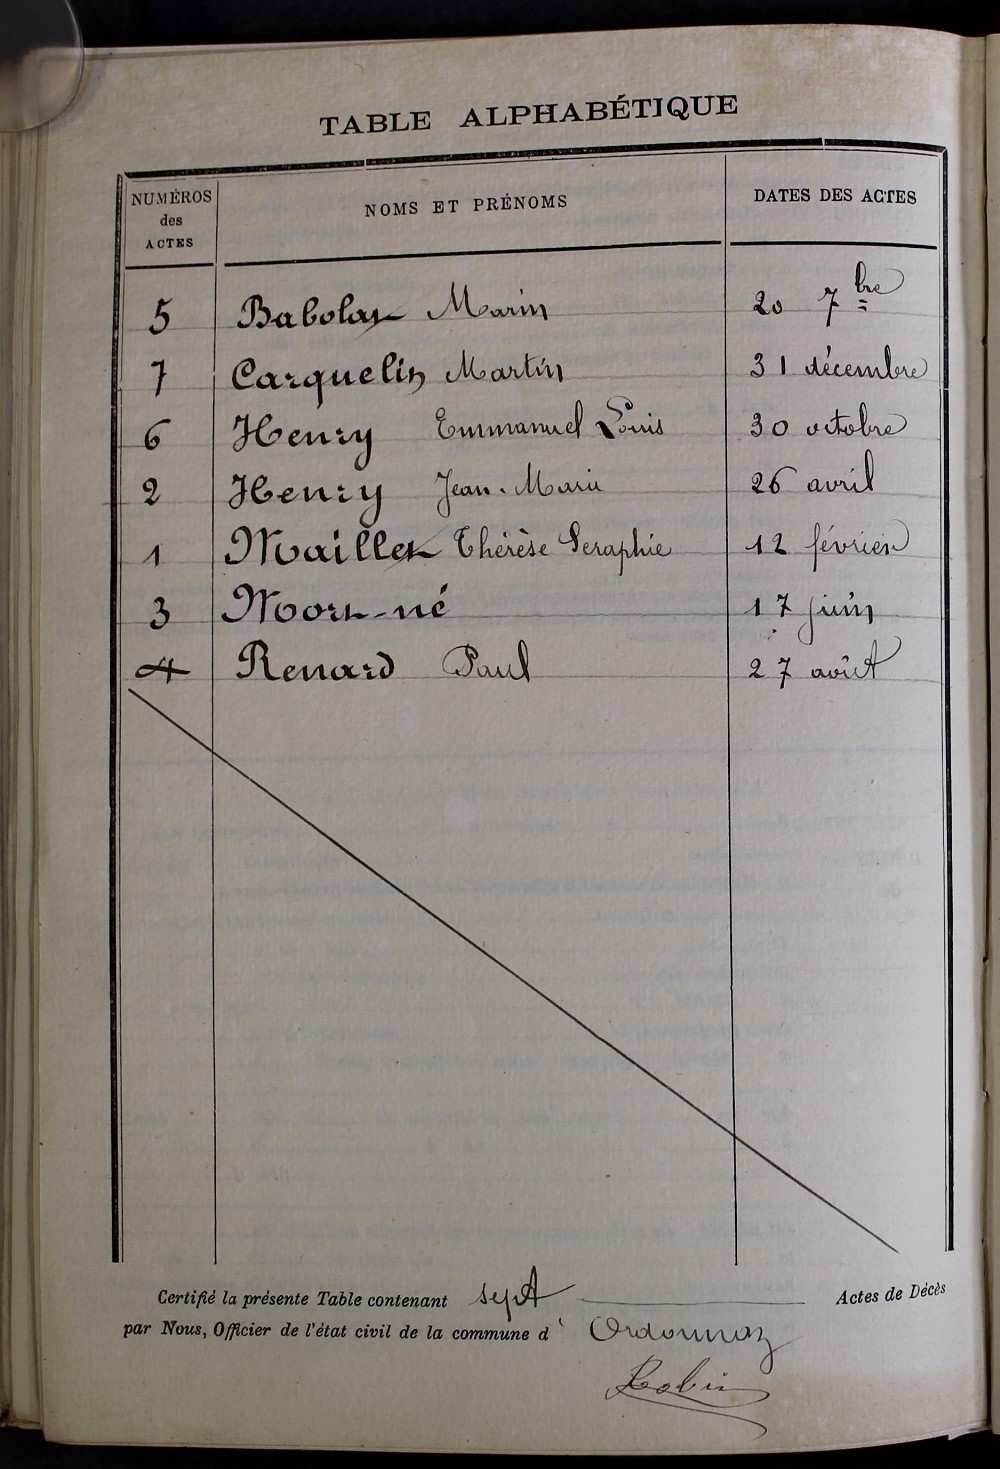 TABLE ALPHABÉTIQUE
NUMÉROS des ACTES NOMS ET PRÉNOMS DATES DES ACTES
5 Babolat Marin 20 7bre
7 Carquelin Martin 31 décembre
6 Henry Emmanuel Louis 30 octobre
2 Henry Jean-Marie 26 avril
1 Maillet Thérèse Seraphie 12 février
3 Mort-né 17 juin
4 Renard Paul 27 août
Certifié la présente Table contenant sept Actes de Décès
par Nous, Officier de l'état civil de la commune d' Ordonnaz
Robin